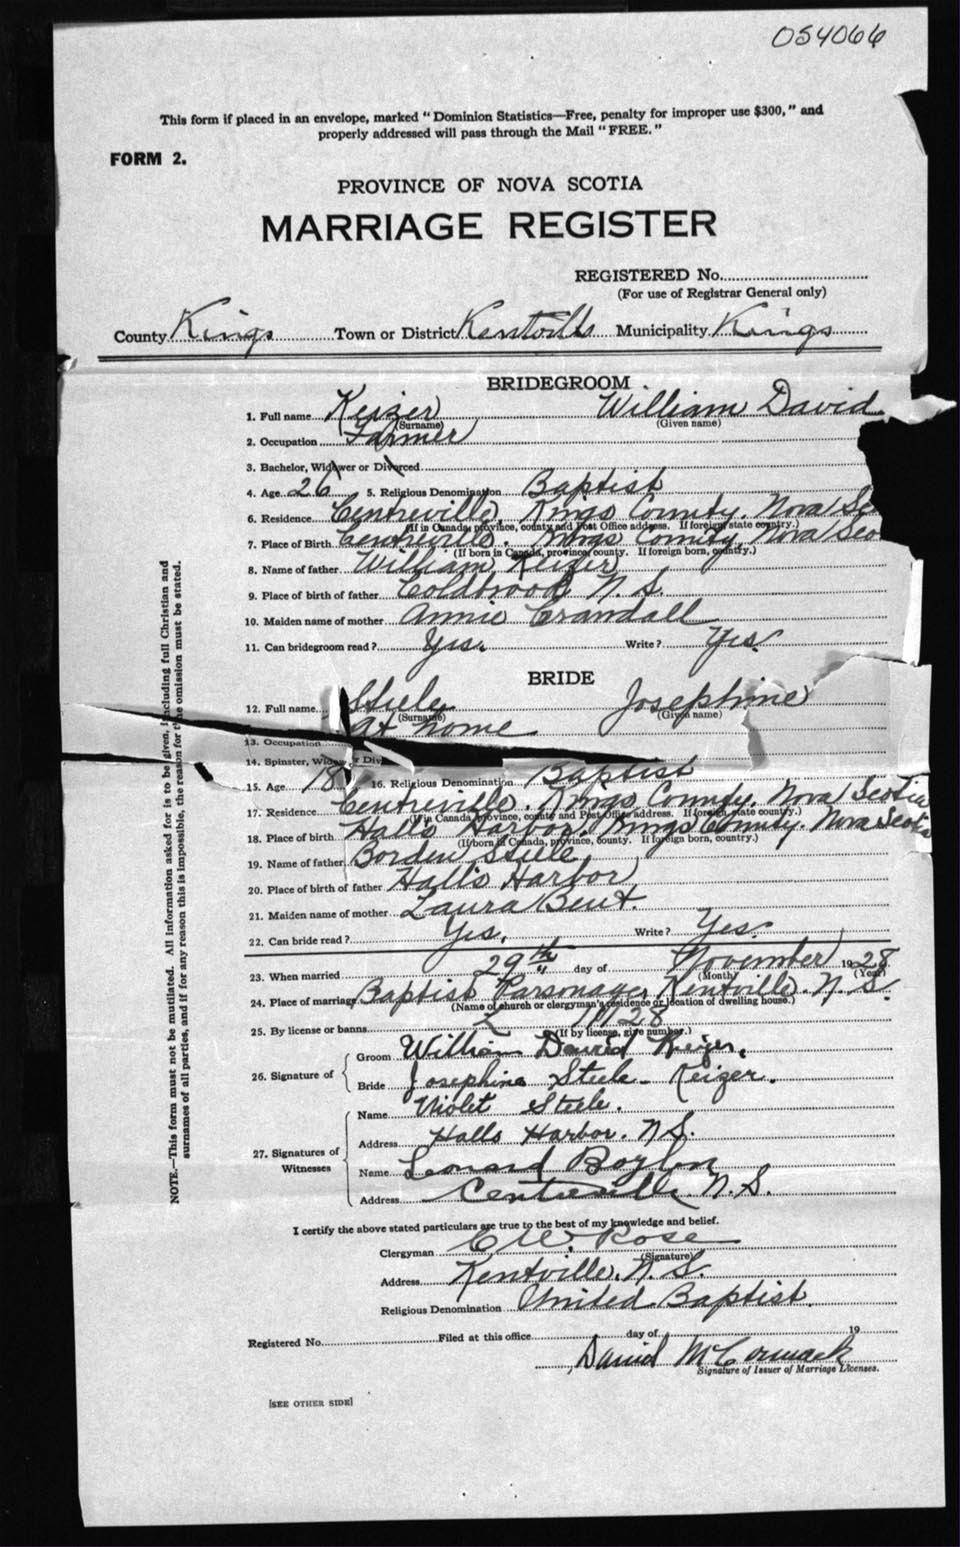 054066
This form if placed in an envelope, marked "Dominion Statistics—Free, penalty for improper use $300," and
properly addressed will pass through the Mail "FREE."
FORM 2.
PROVINCE OF NOVA SCOTIA
MARRIAGE REGISTER
REGISTERED No.
(For use of Registrar General only)
County Kings Town or District Kentville Municipality Kings
BRIDEGROOM
1. Full name Keizer William David
(Surname) (Given name)
2. Occupation Farmer
3. Bachelor, Widower or Divorced
4. Age 26 5. Religious Denomination Baptist
6. Residence Centreville, Kings County. Nova
(If in Canada, province, county and Post Office address. If foreign state country.)
7. Place of Birth Centreville. Kings County Nova
(If born in Canada, province, county. If foreign born, country.)
8. Name of father William Keizer
9. Place of birth of father Coldbrook N. S.
10. Maiden name of mother Annie Crandall
11. Can bridegroom read? Yes. Write? Yes.
BRIDE
12. Full name Steele Josephine
(Surname) (Given name)
13. Occupation At home
14. Spinster, Widow or Div
15. Age 18 16. Religious Denomination Baptist
17. Residence Centreville. Kings County. Nova Scotia
(If in Canada, province, county and Post Office address. If foreign, state country.)
18. Place of birth Halls Harbor. Kings County. Nova Scotia
(If born in Canada, province, county. If foreign born, country.)
19. Name of father Borden Steele
20. Place of birth of father Halls Harbor
21. Maiden name of mother Laura Bent.
22. Can bride read? Yes. Write? Yes.
23. When married 29th day of November 1928
(Month) (Year)
24. Place of marriage Baptist Parsonage, Kentville. N. S.
(Name of church or clergyman's residence or location of dwelling house.)
25. By license or banns L 28
(If by license, give number.)
26. Signature of Groom William David Keizer.
Bride Josephine Steele-Keizer.
27. Signatures of Witnesses Name Violet Steele.
Address Halls Harbor. N.S.
Name Leonard Boylen
Address Centreville N. S.
I certify the above stated particulars are true to the best of my knowledge and belief.
Clergyman C W. Rose
(Signature)
Address Kentville, N. S.
Religious Denomination United Baptist.
Registered No. Filed at this office day of 19
David McCormack
Signature of Issuer of Marriage Licenses.
[SEE OTHER SIDE]
NOTE.—This form must not be mutilated. All information asked for is to be given, including full Christian and
surnames of all parties, and if for any reason this is impossible, the reason for the omission must be stated.